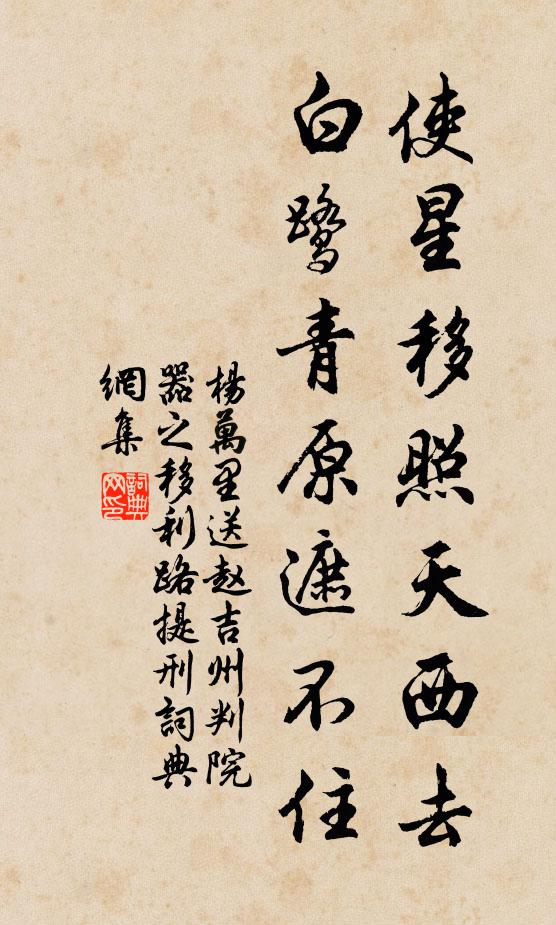 使星移照天西去
白鹭青原遮不住
楊萬里送赵吉州判院
器之移利路提刑詞典
網集
詞典
网印